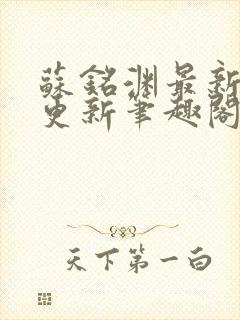 蘇銘淵最新
更新筆趣閣
天下第一白